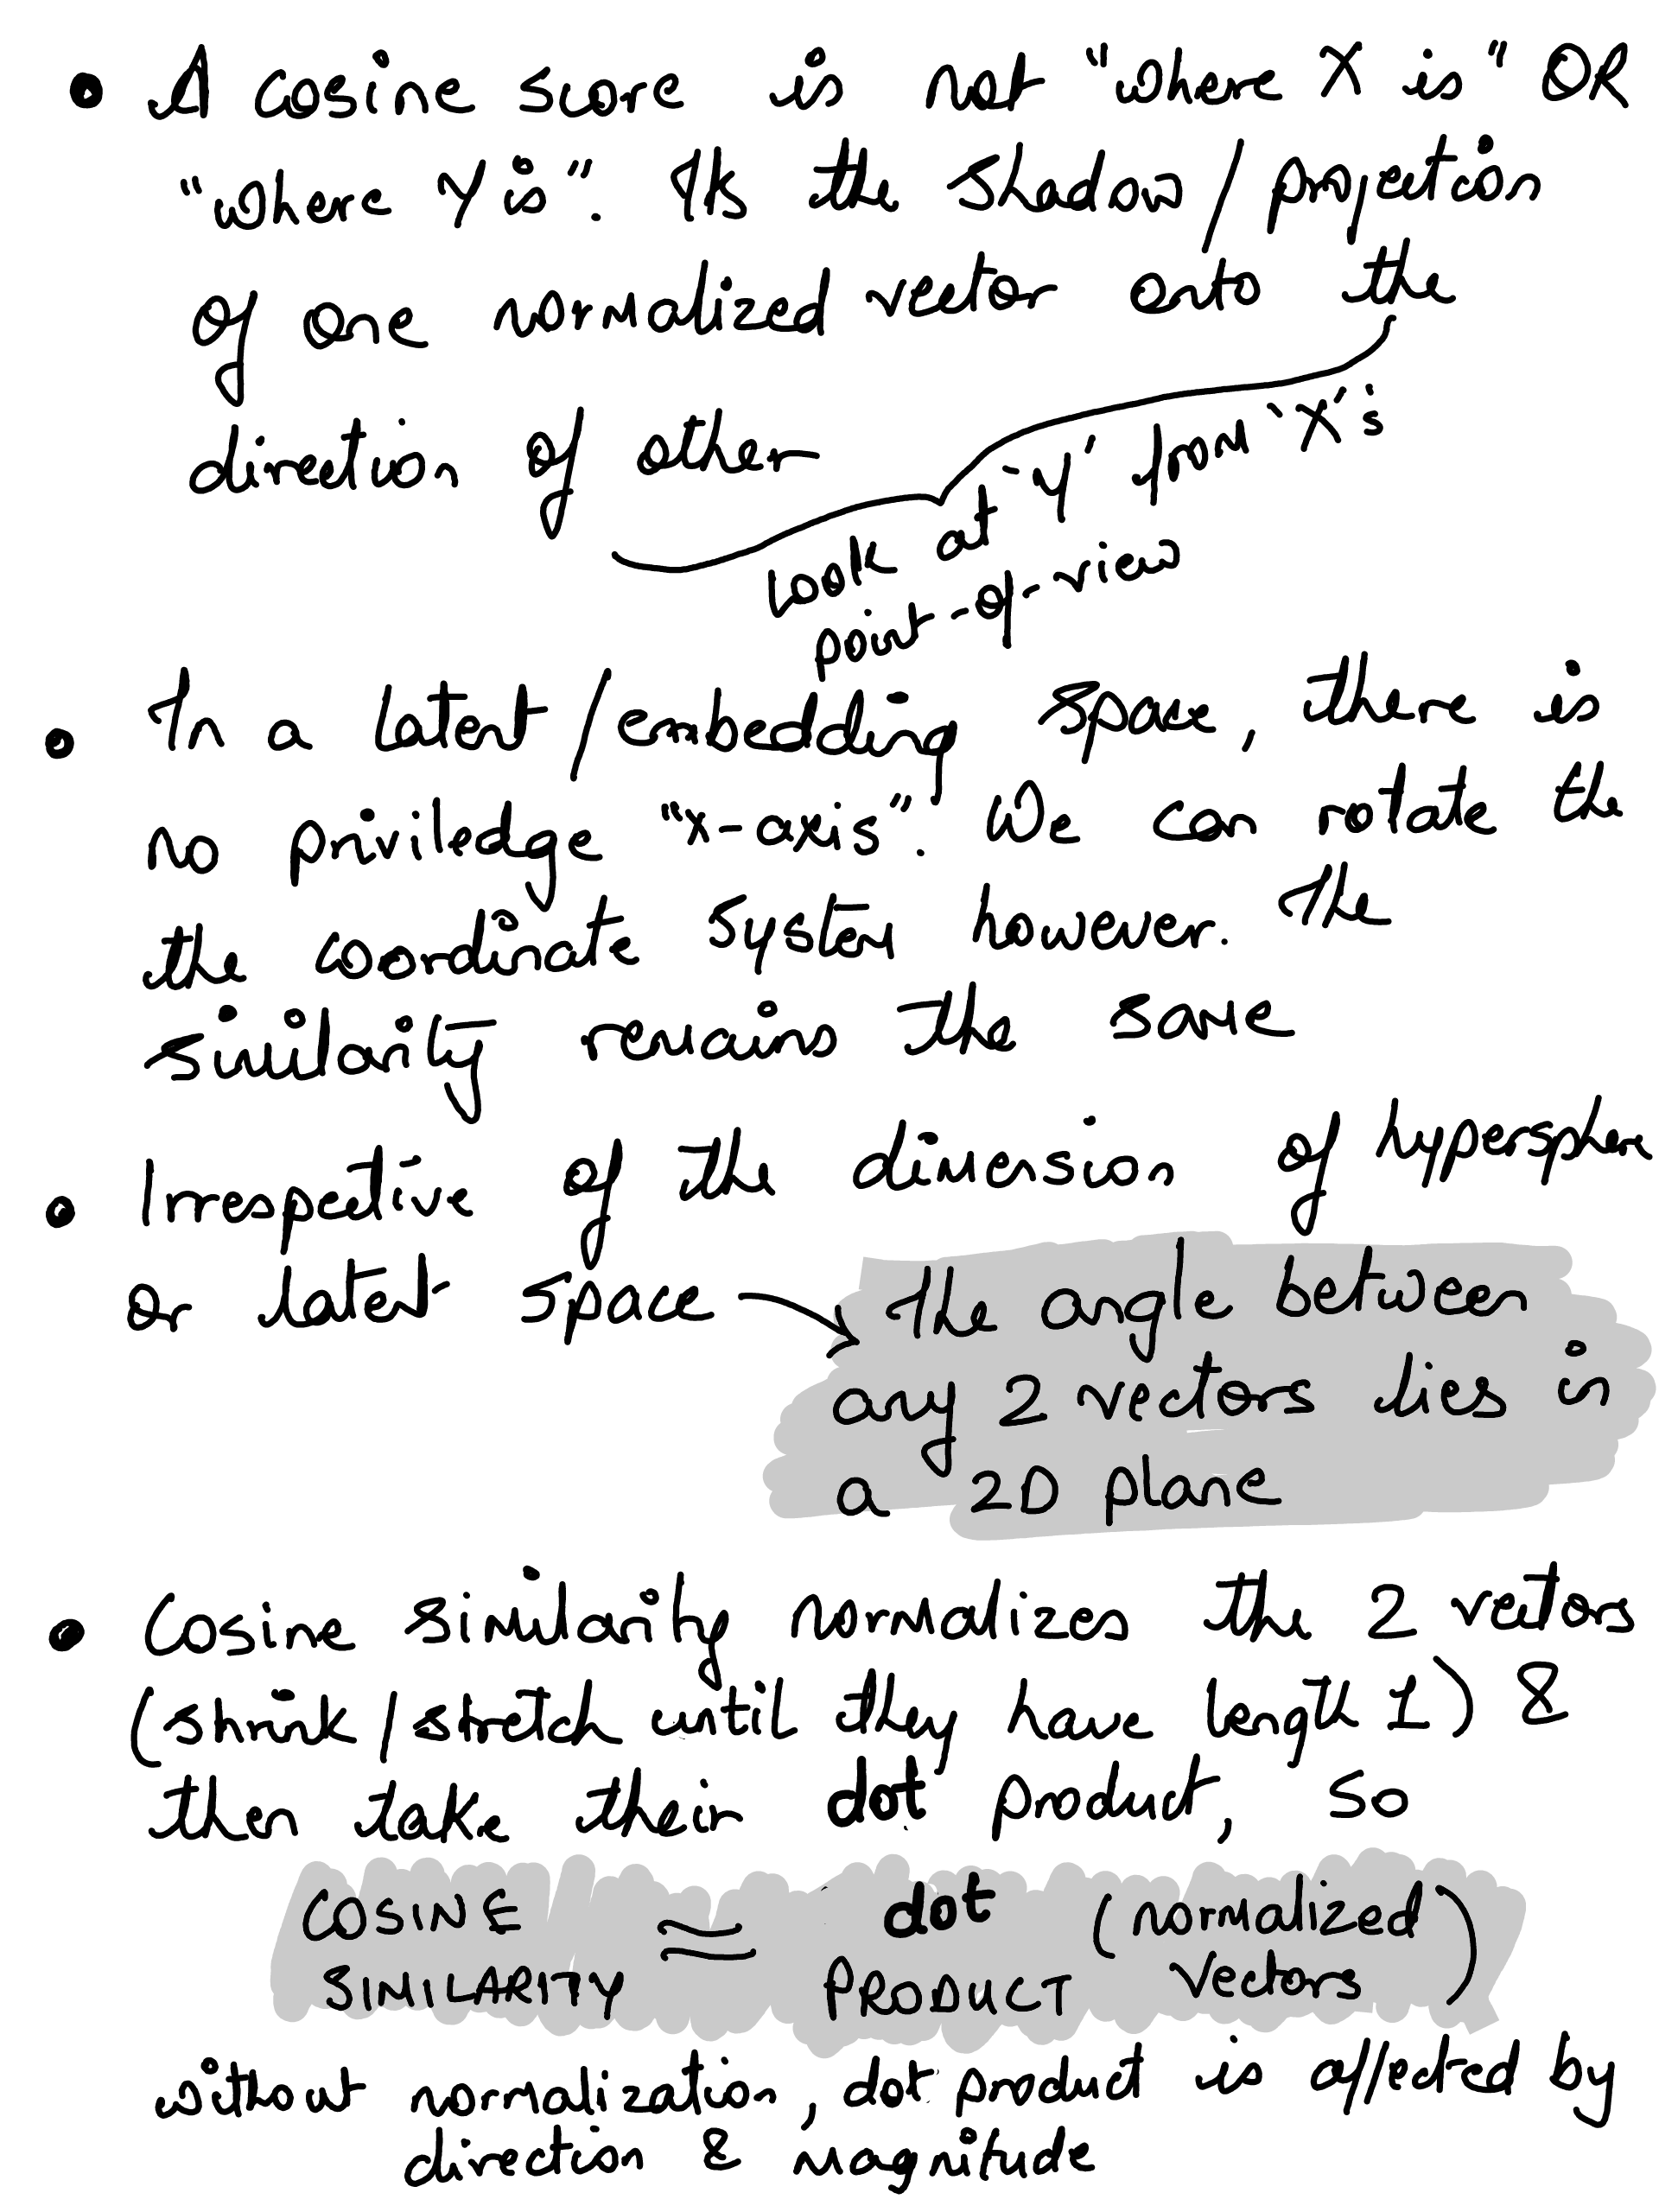 • A cosine score is not "where X is" OR
"where Y is". Its the shadow/projection
of one normalized vector onto the
direction of other
look at 'Y' from 'X's
point-of-view
• In a latent/embedding space, there is
no priviledge "x-axis". We can rotate the
the coordinate system however. The
similarity remains the same
• Irrespective of the dimension of hypersphere
or latent space → The angle between
any 2 vectors lies in
a 2D plane
• Cosine similarity normalizes the 2 vectors
(shrink/stretch until they have length 1) &
then take their dot product, so
COSINE SIMILARITY ≈ dot PRODUCT (normalized vectors)
without normalization, dot product is affected by
direction & magnitude